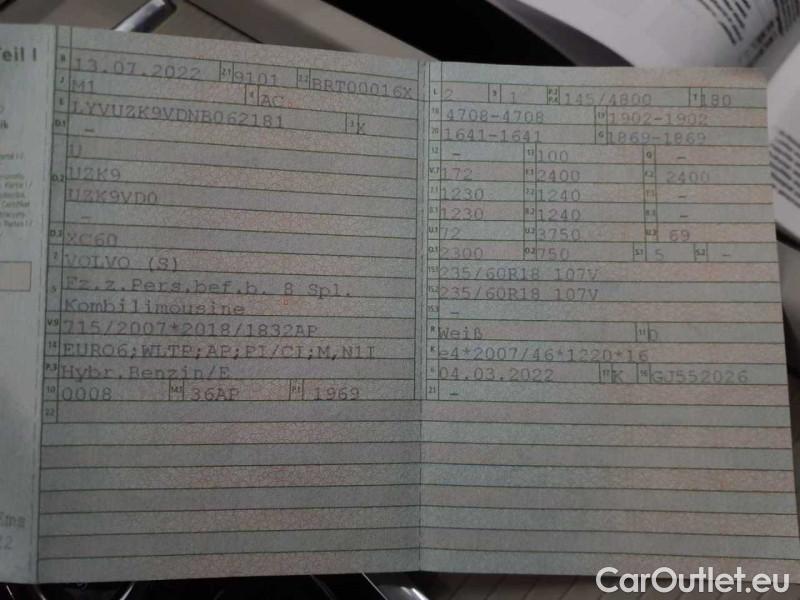 Teil I
B 13.07.2022 2.1 9101 2.2 BRT00016X
J M1 4 AC
E LYVUZK9VDNB062181 3 X
D.1 –
U
D.2 UZK9
UZK9VD0
–
D.3 XC60
2 VOLVO (S)
5 Fz.z.Pers.bef.b. 8 Spl.
Kombilimousine
V.9 715/2007*2018/1832AP
14 EURO6;WLTP;AP;PI/CI;M,N1I
P.3 Hybr.Benzin/E
10 0008 14.1 36AP P.1 1969
22
L 2 9 1 P.2 P.4 145/4800 T 180
18 4708-4708 19 1902-1902
20 1641-1641 G 1869-1869
12 – 13 100 Q –
V.7 172 F.1 2400 F.2 2400
7.1 1230 7.2 1240 7.3 –
8.1 1230 8.2 1240 8.3 –
U.1 72 U.2 3750 U.3 69
O.1 2300 O.2 750 S.1 5 S.2 –
15.1 235/60R18 107V
15.2 235/60R18 107V
15.3 –
R Weiß 11 0
K e4*2007/46*1220*16
6 04.03.2022 17 K 16 GJ552026
21 –
CarOutlet.eu